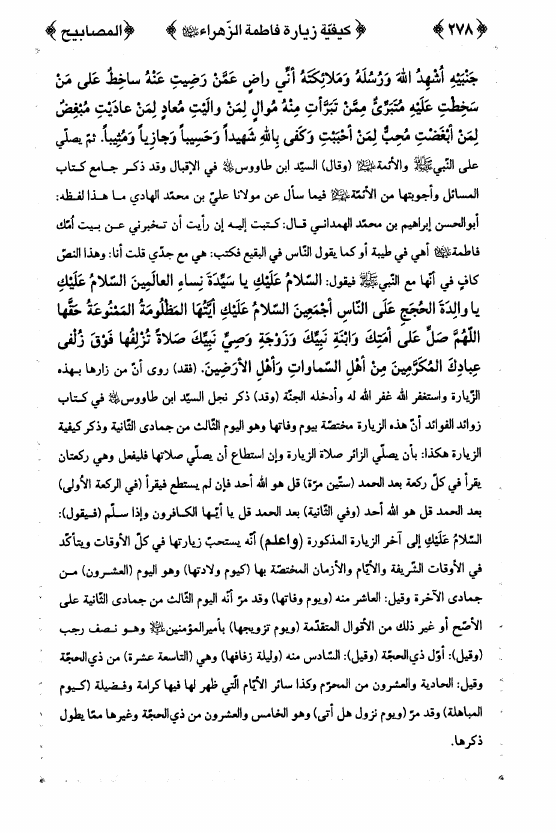 ﴿٢٧٨﴾ ﴿كيفيّة زيارة فاطمة الزّهراء﴾ ﴿المصابيح﴾
جَنْبَيْهِ اُشْهِدُ اللهَ وَرُسُلَهُ وَمَلَائِكَتَهُ أَنِّي راضٍ عَمَّنْ رَضِيتِ عَنْهُ ساخِطٌ عَلى مَنْ
سَخِطْتِ عَلَيْهِ مُتَبَرِّئٌ مِمَّنْ تَبَرَّأتِ مِنْهُ مُوالٍ لِمَنْ والَيْتِ مُعادٍ لِمَنْ عادَيْتِ مُبْغِضٌ
لِمَنْ أَبْغَضْتِ مُحِبٌّ لِمَنْ أَحْبَبْتِ وَكَفى بِاللهِ شَهِيداً وَحَسِيباً وَجازِياً وَمُثِيباً. ثمّ يصلّي
على النّبي ﷺ والأئمة (وقال) السيّد ابن طاووس في الإقبال وقد ذكر جامع كتاب
المسائل وأجوبتها من الأئمّة فيما سأل عن مولانا عليّ بن محمّد الهادي ما هذا لفظه:
أبوالحسن إبراهيم بن محمّد الهمداني قال: كتبت إليه إن رأيت أن تخبرني عن بيت اُمّك
فاطمة أهي في طيبة أو كما يقول النّاس في البقيع فكتب: هي مع جدّي قلت أنا: وهذا النصّ
كافٍ في أنّها مع النّبي ﷺ فيقول: السّلامُ عَلَيْكِ يا سَيِّدَةَ نِساءِ العالَمِينَ السّلامُ عَلَيْكِ
يا والِدَةَ الحُجَجِ عَلَى النّاسِ أَجْمَعِينَ السّلامُ عَلَيْكِ أَيَّتُهَا المَظْلُومَةُ المَمْنُوعَةُ حَقَّها
اللّهُمَّ صَلِّ عَلى أَمَتِكَ وَابْنَةِ نَبِيِّكَ وَزَوْجَةِ وَصِيِّ نَبِيِّكَ صَلاةً تُزْلِفُها فَوْقَ زُلْفى
عِبادِكَ المُكَرَّمِينَ مِنْ أَهْلِ السّماواتِ وَأَهْلِ الأَرَضِينَ. (فقد) روى أنّ من زارها بهذه
الزّيارة واستغفر الله غفر الله له وأدخله الجنّة (وقد) ذكر نجل السيّد ابن طاووس في كتاب
زوائد الفوائد أنّ هذه الزيارة مختصّة بيوم وفاتها وهو اليوم الثّالث من جمادى الثّانية وذكر كيفية
الزيارة هكذا: بأن يصلّي الزائر صلاة الزيارة وإن استطاع أن يصلّي صلاتها فليفعل وهي ركعتان
يقرأ في كلّ ركعة بعد الحمد (ستّين مرّة) قل هو الله أحد فإن لم يستطع فيقرأ (في الركعة الأولى)
بعد الحمد قل هو الله أحد (وفي الثّانية) بعد الحمد قل يا أيّها الكافرون وإذا سلّم (فيقول):
السّلامُ عَلَيْكِ إلى آخر الزيارة المذكورة (واعلم) أنّه يستحبّ زيارتها في كلّ الأوقات ويتأكّد
في الأوقات الشّريفة والأيّام والأزمان المختصّة بها (كيوم ولادتها) وهو اليوم (العشرون) من
جمادى الآخرة وقيل: العاشر منه (ويوم وفاتها) وقد مرّ أنّه اليوم الثّالث من جمادى الثّانية على
الأصّح أو غير ذلك من الأقوال المتقدّمة (ويوم تزويجها) بأميرالمؤمنين وهو نصف رجب
(وقيل): أوّل ذي‌الحجّة (وقيل): السّادس منه (وليلة زفافها) وهي (التاسعة عشرة) من ذي‌الحجّة
وقيل: الحادية والعشرون من المحرّم وكذا سائر الأيّام الّتي ظهر لها فيها كرامة وفضيلة (كيوم
المباهلة) وقد مرّ (ويوم نزول هل أتى) وهو الخامس والعشرون من ذي‌الحجّة وغيرها ممّا يطول
ذكرها.